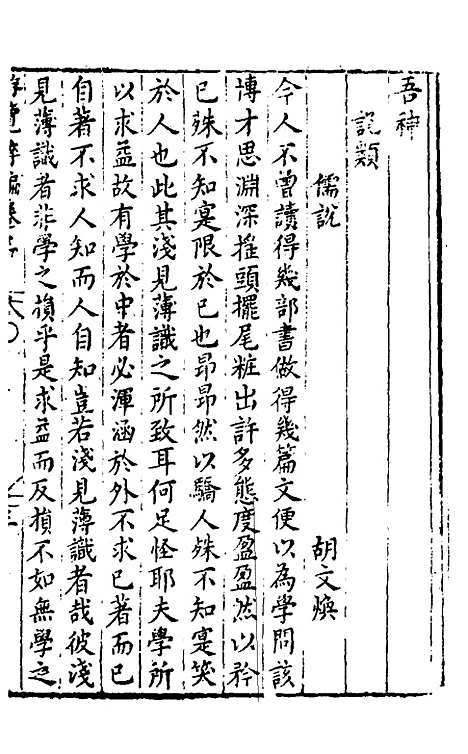 吾神
說類
儒說
胡文煥
今人不曾讀得幾部書做得幾篇文便以為學問該
博才思淵深搖頭擺尾粧出許多態度盈盈然以矜
已殊不知寔限於已也昂昂然以驕人殊不知寔笑
於人也此其淺見薄識之所致耳何足怪耶夫學所
以求益故有學於中者必渾涵於外不求已著而已
自著不求人知而人自知豈若淺見薄識者哉彼淺
見薄識者非學之損乎是求益而反損不如無學之
游覽粹編卷